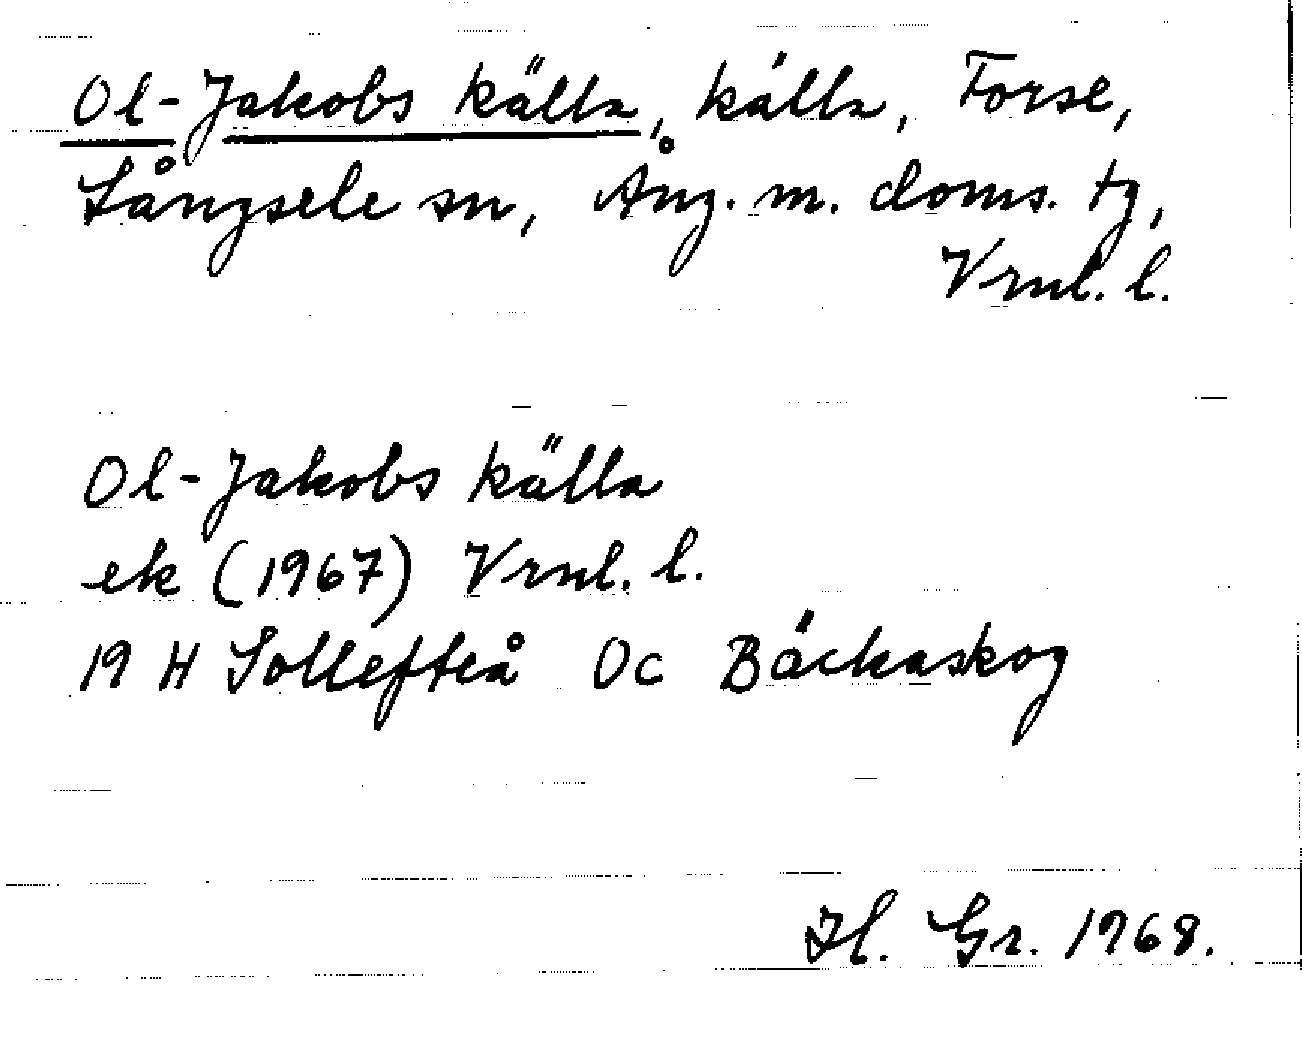 Ol-Jakobs källa, källa, Forse,
Långsele sn, Ång. m. doms. tg,
Vrnl. l.
Ol-Jakobs källa
ek (1967) Vrnl. l.
19 H Sollefteå Oc Bäckaskog
Hl. Gr. 1968.